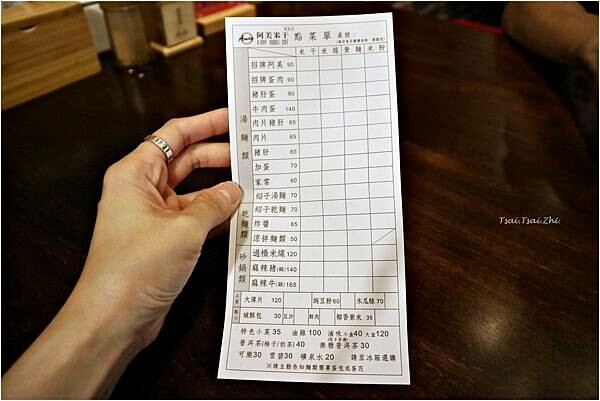 阿美米干 點菜單 桌號:
米干 米線 黃麵 米粉
湯麵類
招牌阿美 90
招牌蛋肉 90
豬肝蛋 90
牛肉蛋 140
肉片豬肝 85
肉片 85
豬肝 85
加蛋 70
家常 60
紹子湯麵 70
乾麵類
紹子乾麵 70
炸醬 65
涼拌麵類 50
砂鍋類
過橋米線 120
麻辣豬(鍋) 140
麻辣牛(鍋) 165
大薄片 120 豌豆粉 60 木瓜絲 70
破酥包 30 豆沙 鮮肉 椰香紫米 35
特色小菜 35 油雞 100 滷味 小盤40 大盒120
普洱茶(梅子/奶茶) 40 無糖普洱茶 30
可樂30 雪碧30 礦泉水 20 請至冰箱選購
※請主動告知麵類需要蛋包或蛋花
Tsai.Tsai.Zhi.